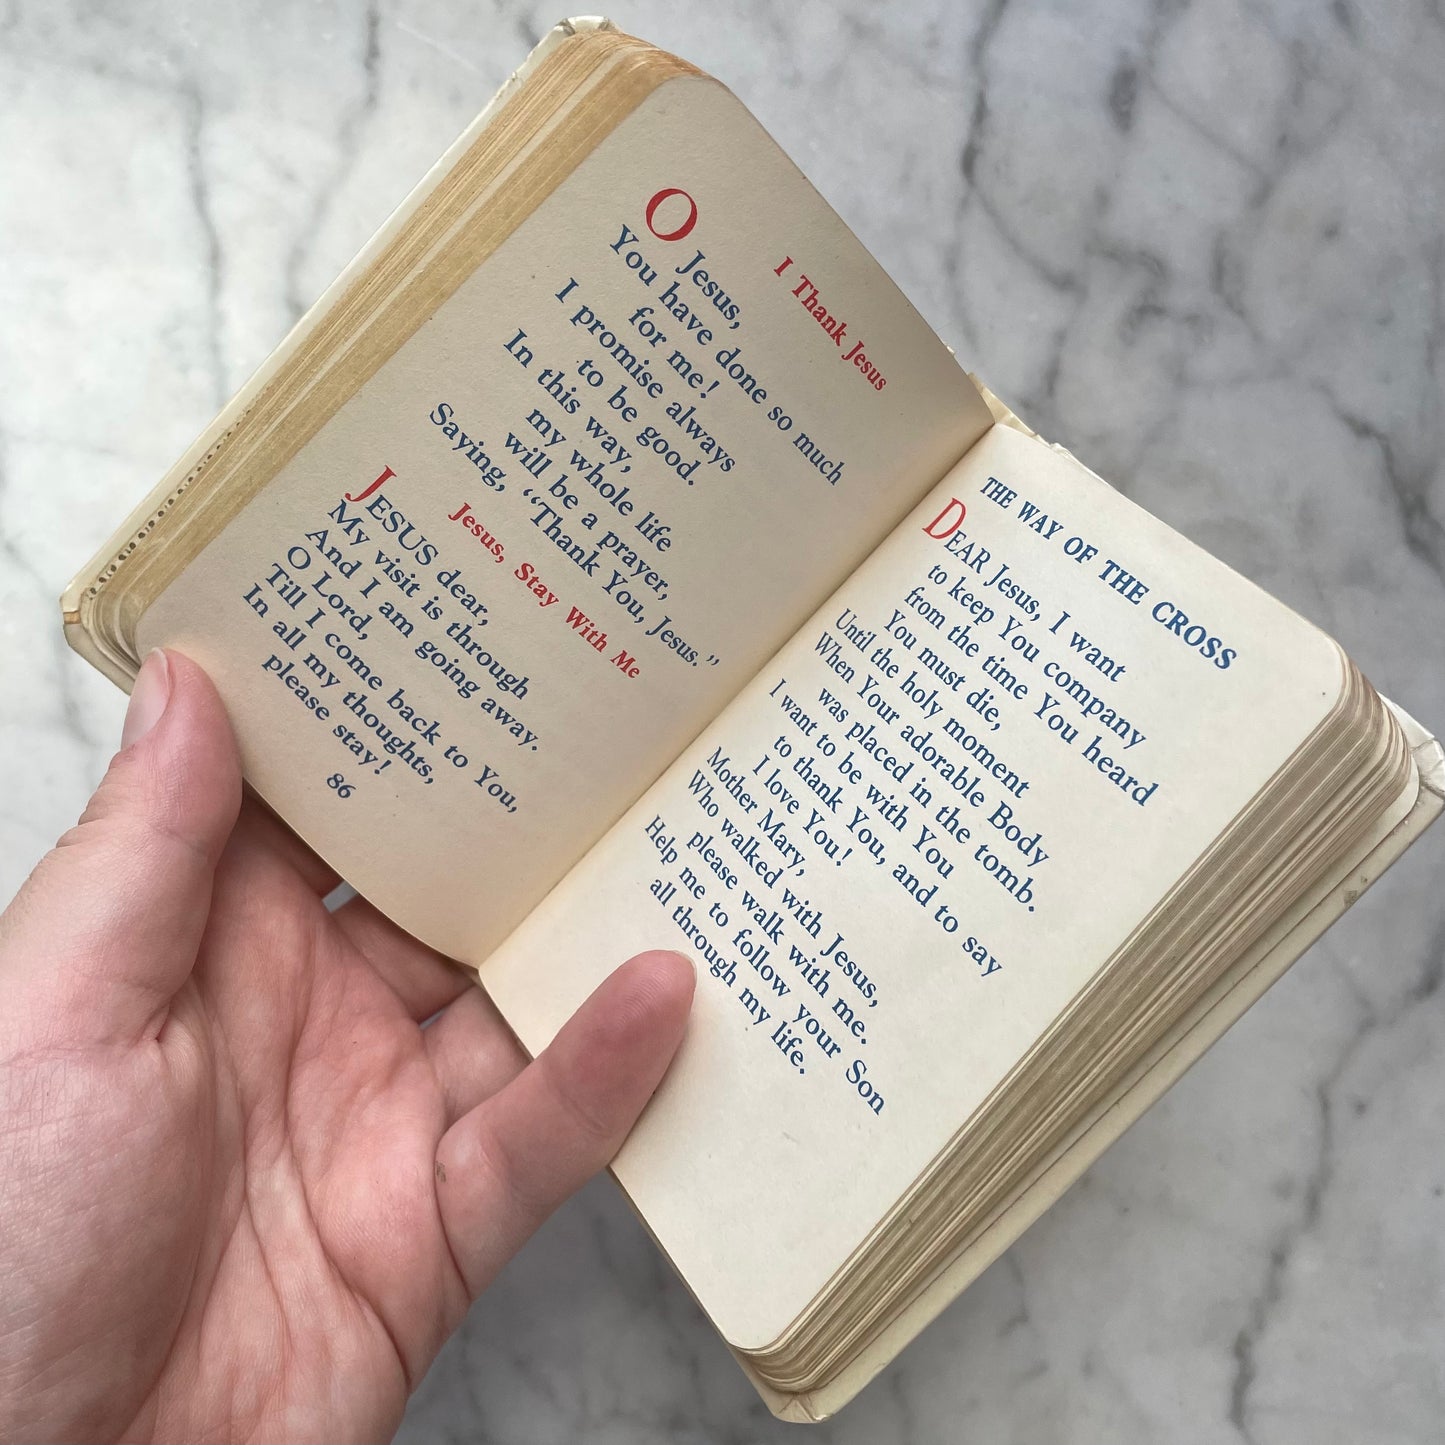 I Thank Jesus
O Jesus,
You have done so much
for me!
I promise always
to be good.
In this way,
my whole life
will be a prayer,
Saying, “Thank You, Jesus.”
Jesus, Stay With Me
JESUS dear,
My visit is through
And I am going away.
O Lord,
Till I come back to You,
In all my thoughts,
please stay!
86
THE WAY OF THE CROSS
DEAR Jesus, I want
to keep You company
from the time You heard
You must die,
Until the holy moment
When Your adorable Body
was placed in the tomb.
I want to be with You
to thank You, and to say
I love You!
Mother Mary,
Who walked with Jesus,
please walk with me.
Help me to follow your Son
all through my life.